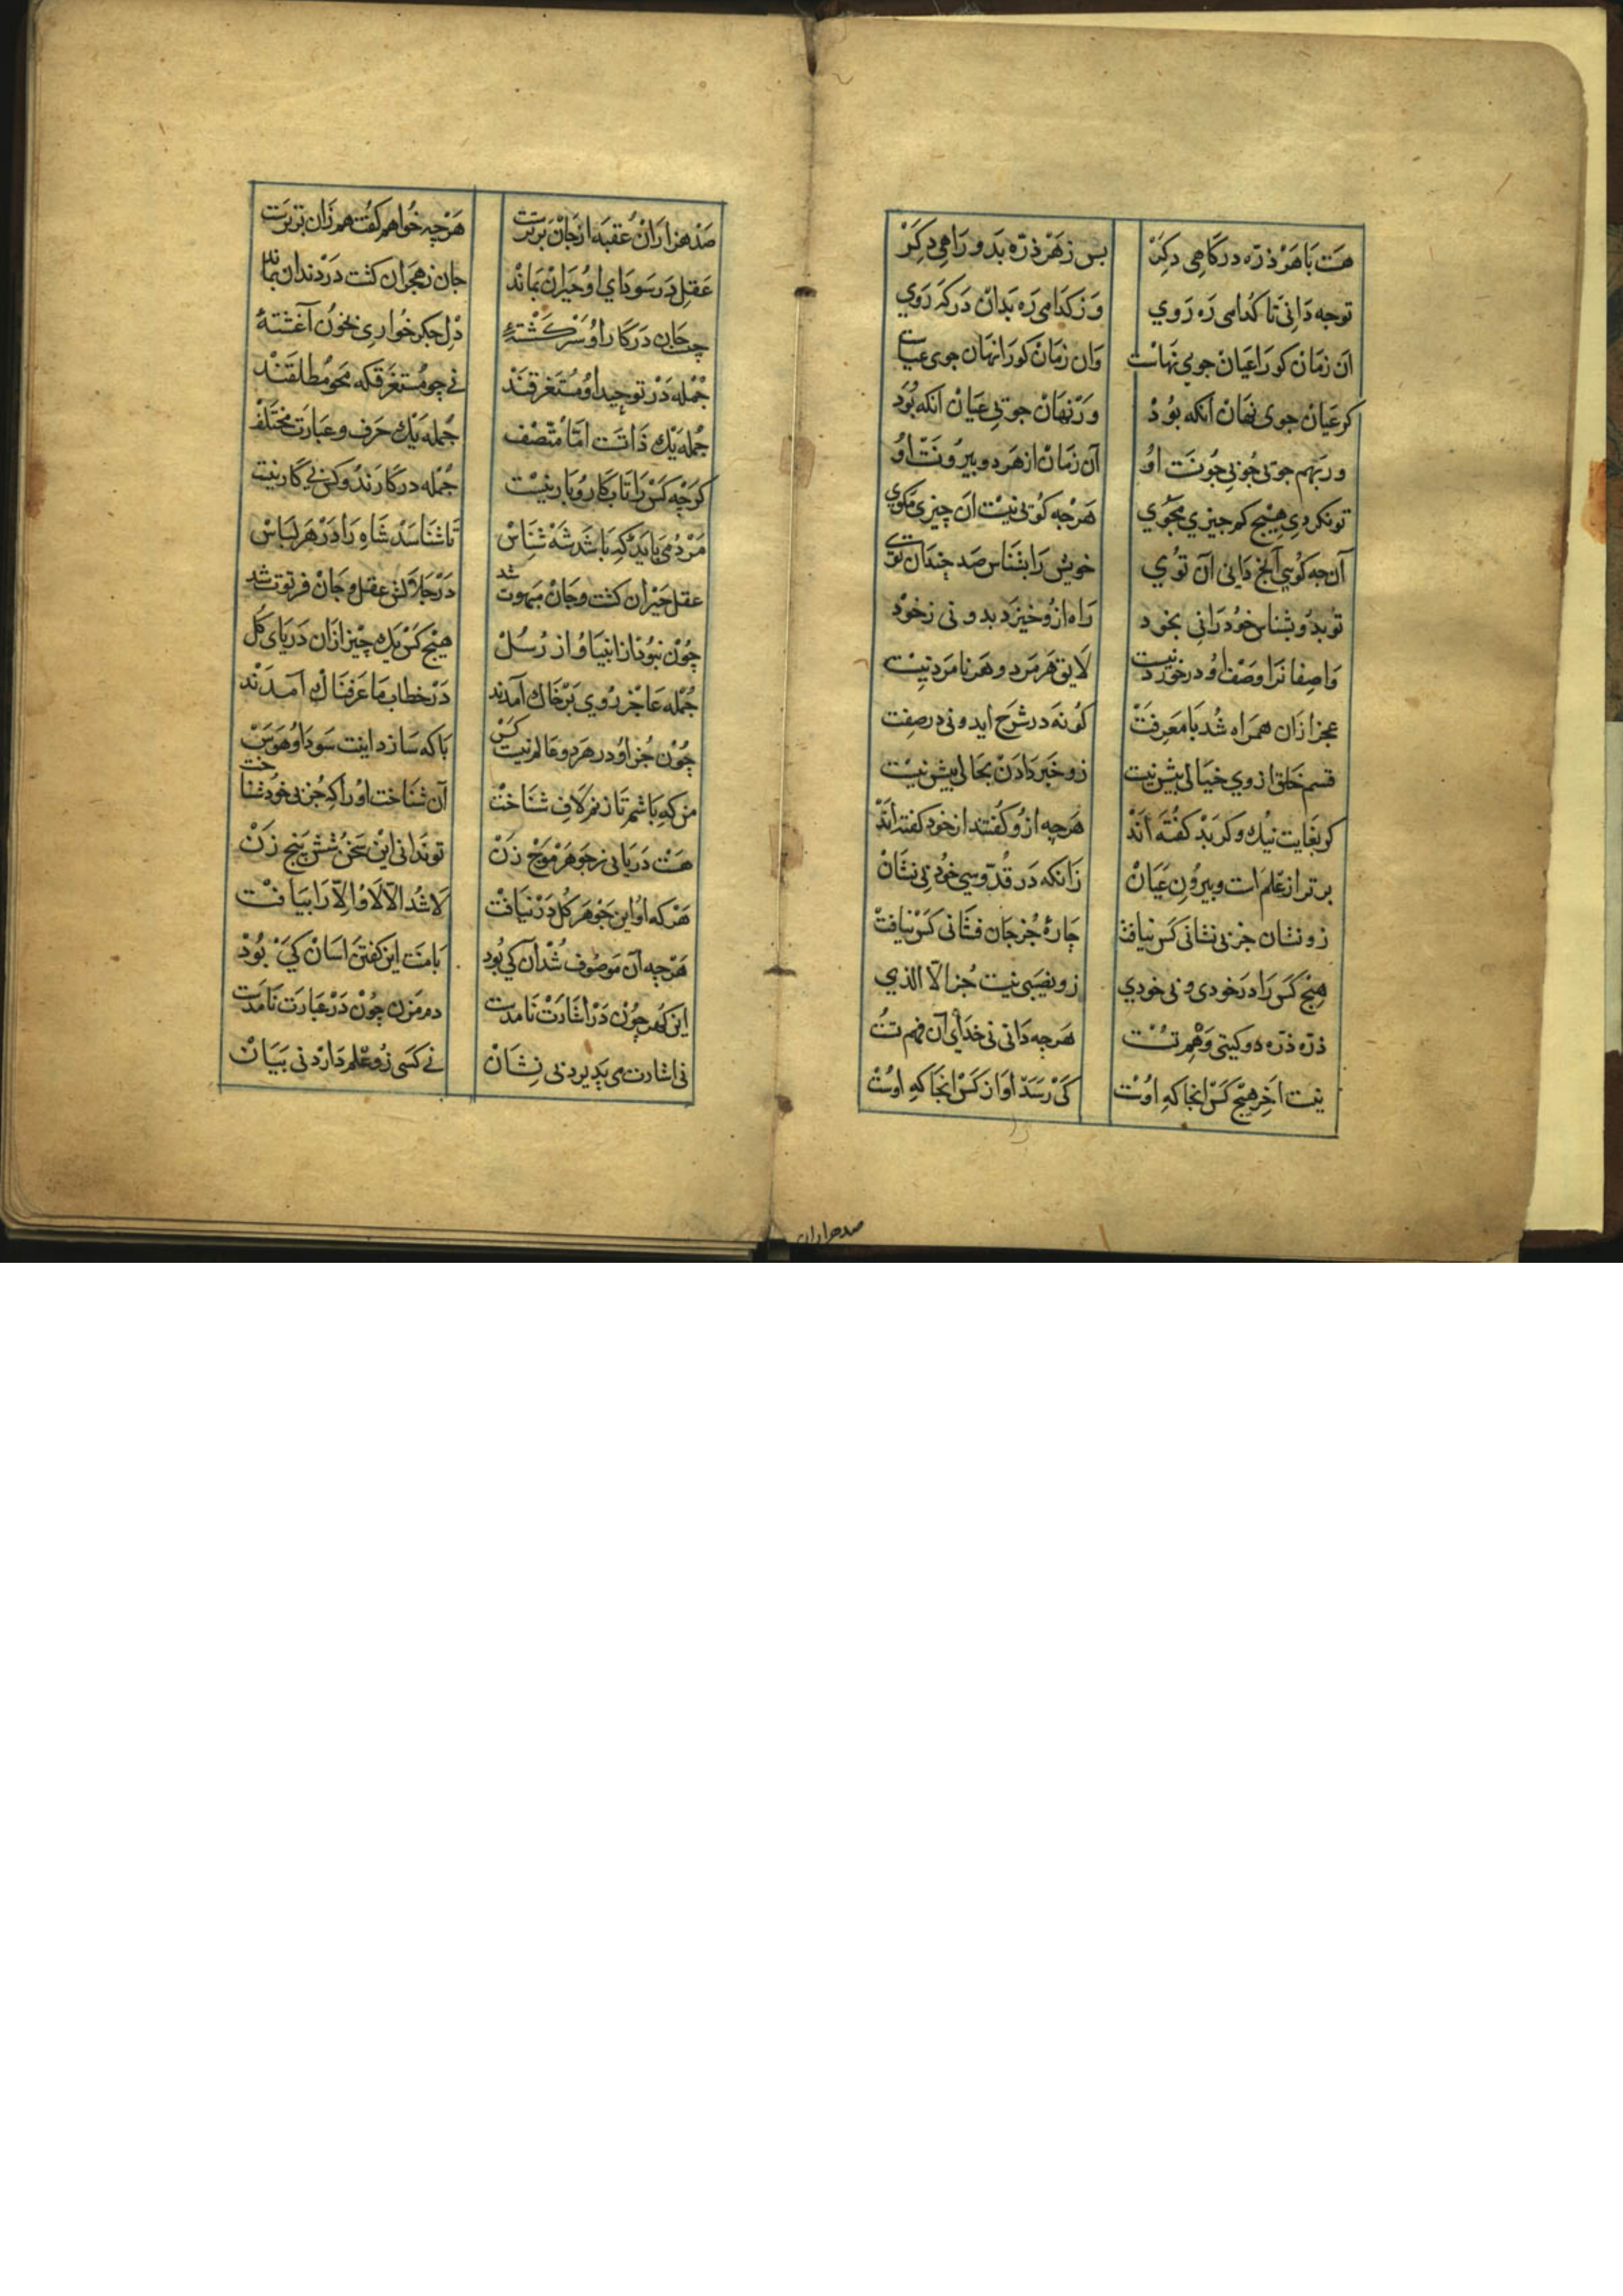 هست با هر ذرّه درگاهی دگر بس ز هر ذرّه بدو راهی دگر
تو چه دانی تا کدامی ره روی وز کدامی ره بدان درگه روی
آن زمان کورا عیان جوی نهانست وان زمان کورا نهان جوی عیانست
گر عیان جوی نهان آنگه بود ور نهان جویی عیان آنگه بود
ور بهم جویی چو بی چونست او آن زمان از هر دو بیرونست او
تو نکردی هیچ کم چیزی مجوی هرچه گویی نیست آن چیزی مگوی
آن چه گویی آنچ دانی آن توی خویش را بشناس صد چندان توی
تو بدو بشناس خود را نی بخود راه ازو خیزد بدو نی ز خود
واصفانرا وصف او درخورد نیست لایق هر مرد و هر نامرد نیست
عجز ازان همراه شد با معرفت کو نه در شرح آید و نی در صفت
قسم خلق از وی خیالی بیش نیست زو خبر دادن محالی بیش نیست
گر بغایت نیک و گر بد گفته‌اند هرچه ازو گفتند از خود گفته‌اند
برتر از علم است و بیرون عیان زانکه در قدّوسی خود بی نشان
زو نشان جز بی نشانی کس نیافت چارهٔ جز جان فشانی کس نیافت
هیچ کس را در خودی و بی خودی زو نصیبی نیست جز الّا الذی
ذرّه ذرّه دو گیتی وهم تست هرچه دانی نی خدای آن فهم تست
نیست آخر هیچ کس آنجا که اوست کی رسد آواز کس آنجا که اوست
صدهزاران
صد هزاران عقبه از جان برترست هرچه خواهم گفت هم زان برترست
عقل در سودای او حیران بماند جان ز هجران گشت در دندان بماند
چیست جان در کار او سرگشتهٔ دل جگر خواری بخون آغشتهٔ
جمله در توحید او مستغرقند نی چو مستغرق که محو مطلقند
جمله یک ذاتست امّا متّصف جمله یک حرف و عبارت مختلف
گرچه کس را تاب کار و بار نیست جمله در کارند و کس بی کار نیست
مردمی باید که باشد شه شناس تا شناسد شاه را در هر لباس
عقل حیران گشت و جان مبهوت شد در جلالش عقل و جان فرتوت شد
چون نبود از انبیا و از رسل هیچ کس یک چیز ازان دریای کل
جمله عاجز روی بر خاک آمدند در خطاب ما عرفناک آمدند
چون جز او در هر دو عالم نیست کس با که سازد اینت سودا و هوس
من که باشم تا زنم لاف شناخت آن شناخت او را که جز بی خود شناخت
هست دریائی ز جوهر موج زن تو ندانی این سخن شش پنج زن
هر که او این جوهر کل درنیافت لا شد الّا لا و الّا را بیافت
هرچه آن موصوف شد آن کی بود با منت این گفتن آسان کی بود
این گهر چون در اشارت نامدست دم مزن چون در عبارت نامدست
نی اشارت می پذیرد نی نشان نی کسی زو علم دارد نی بیان